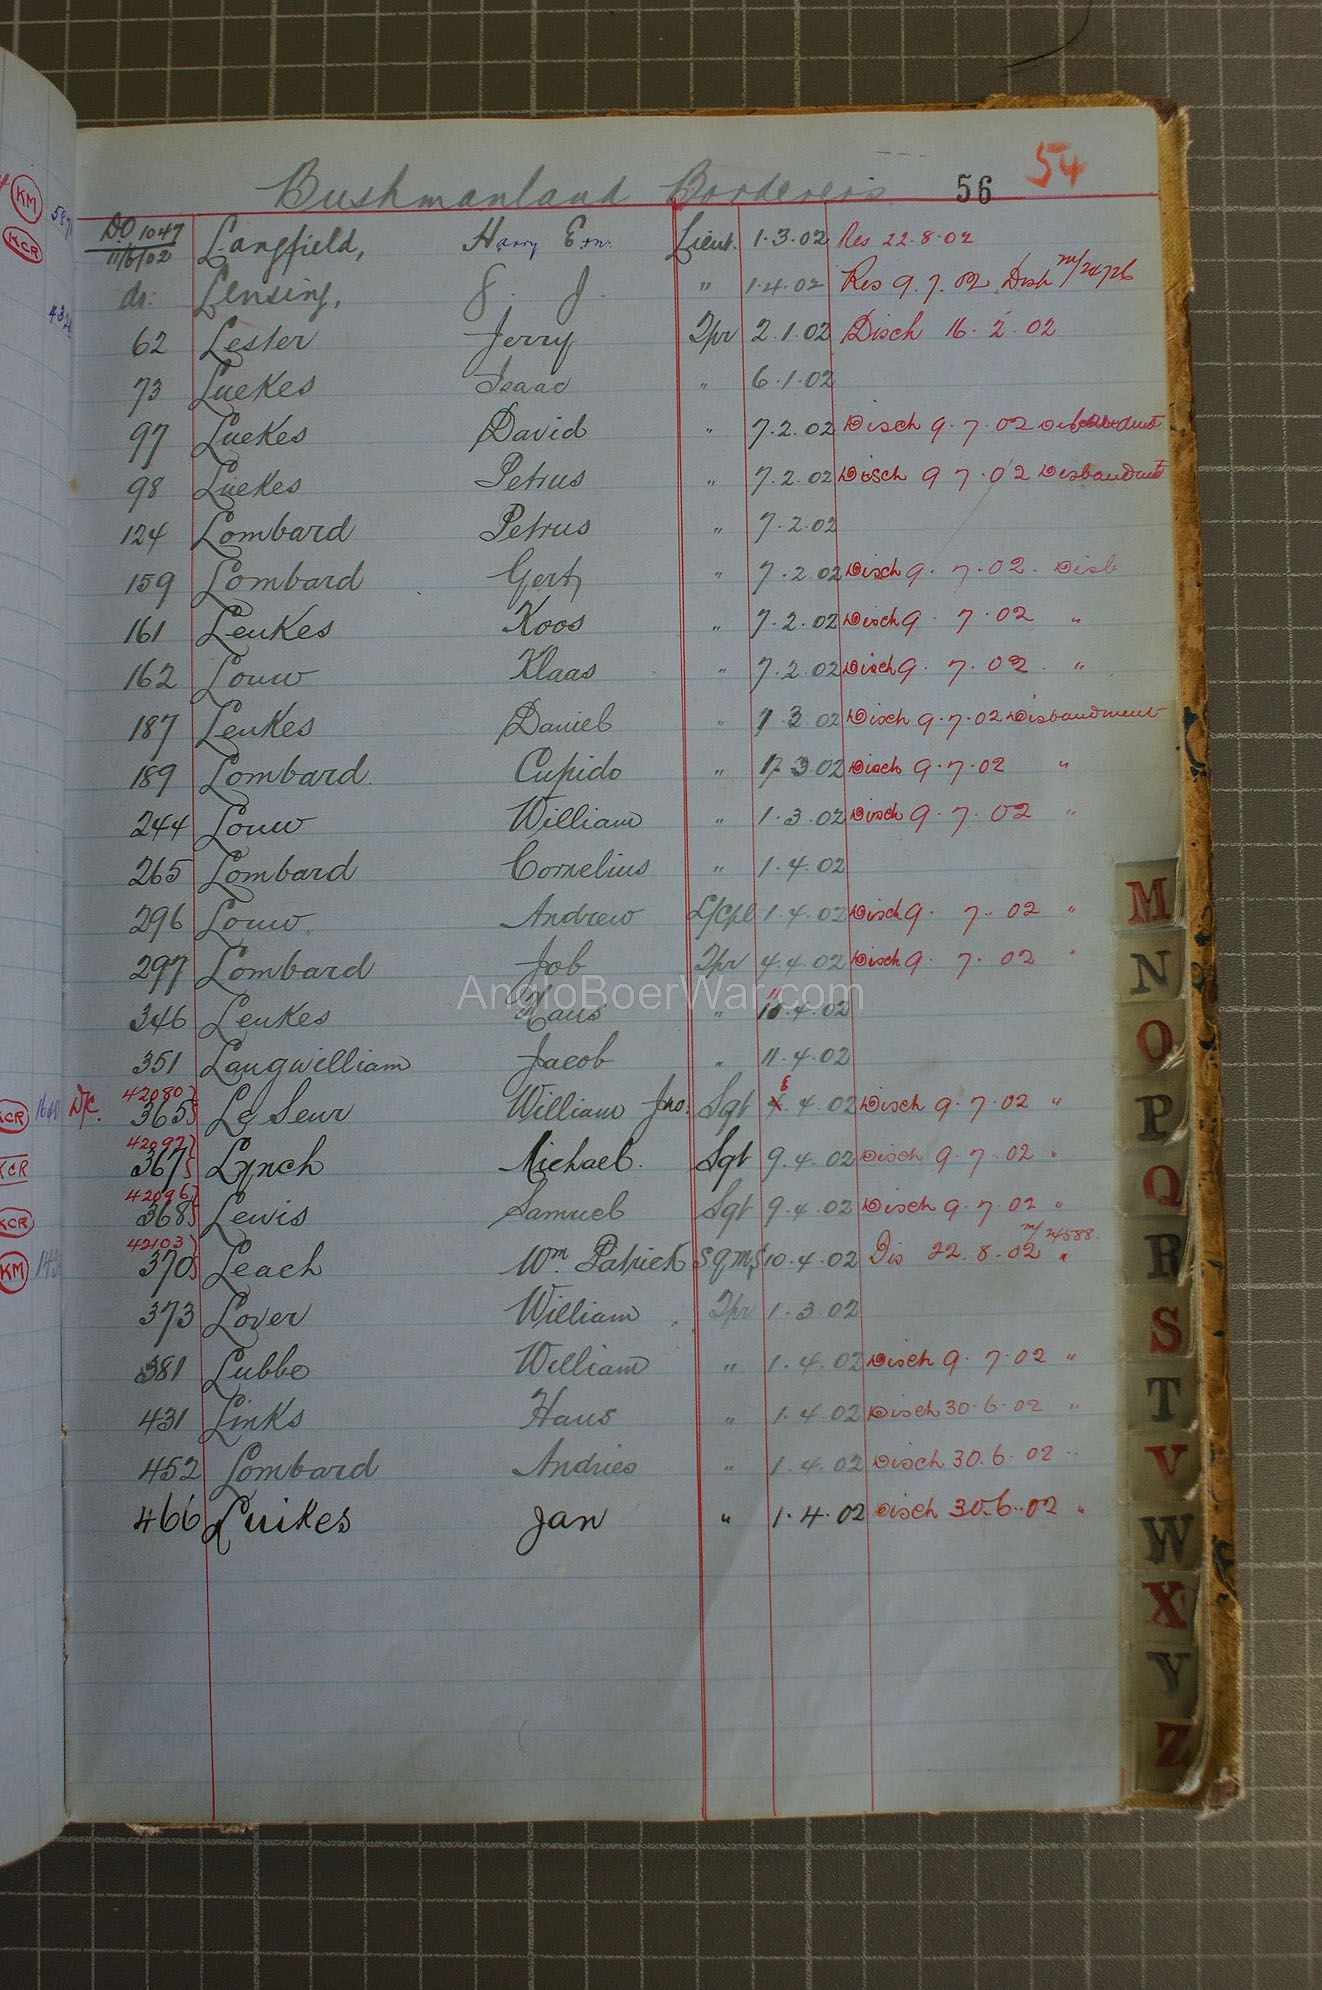 Bushmanland Borderers 56 54
DO 1047 11/6/02 Langfield, Harry Ern. Lieut. 1.3.02 Res 22.8.02
do. Lensing, J. " 1.4.02 Res 9.7.02 Disb
62 Lester Jerry Tpr 2.1.02 Disch 16.2.02
73 Luekes Isaac " 6.1.02
97 Luekes David " 7.2.02 Disch 9.7.02
98 Luekes Petrus " 7.2.02 Disch 9 7.02 Disbandmt
124 Lombard Petrus " 7.2.02
159 Lombard Gert " 7.2.02 Disch 9.7.02. Disb
161 Leukes Koos " 7.2.02 Disch 9.7.02 "
162 Louw Klaas " 7.2.02 Disch 9.7.02. "
187 Leukes Daniel " 3.02 Disch 9.7.02 Disbandment
189 Lombard. Cupido " 3.02 Disch 9.7.02 "
244 Louw William " 1.3.02 Disch 9.7.02 "
265 Lombard Cornelius " 1.4.02
296 Louw Andrew L/Cpl 1.4.02 Disch 9.7.02 "
297 Lombard Job Tpr 4.4.02 Disch 9.7.02 "
AngloBoerWar.com
346 Leukes Hans " 11.4.02
351 Langwilliam Jacob " 11.4.02
42080
KCR D/C. 365 Le Seur William Jno. Sgt 8.4.02 Disch 9.7.02 "
42097
KCR 367 Lynch Michael. Sgt 9.4.02 Disch 9.7.02 "
42096
KCR 368 Lewis Samuel Sgt 9.4.02 Disch 9.7.02 "
42103
KM 370 Leach Wm Patrick SQMS 10.4.02 Dis 22.8.02 " m/24588.
373 Lover William Tpr 1.3.02
381 Lubbe William " 1.4.02 Disch 9.7.02 "
431 Links Hans " 1.4.02 Disch 30.6.02 "
452 Lombard Andries " 1.4.02 Disch 30.6.02 "
466 Luikes Jan " 1.4.02 Disch 30.6.02 "
KM
KCR
M
N
O
P
Q
R
S
T
V
W
X
Y
Z